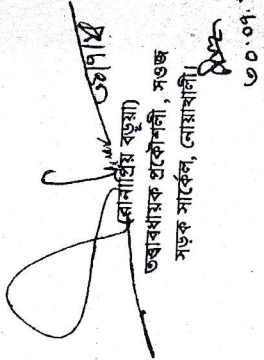 (সোনাপ্রিয় বড়ুয়া)
তত্ত্বাবধায়ক প্রকৌশলী, সওজ
সড়ক সার্কেল, নোয়াখালী।
৩০.০৭.